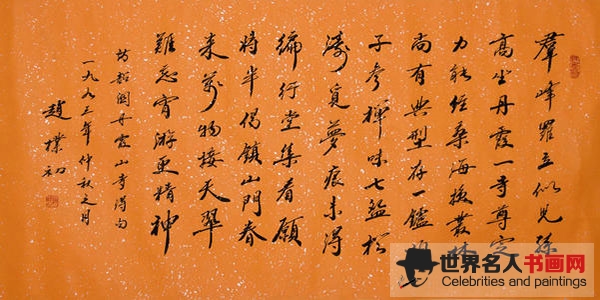 羣峰羅立似兒孫
高坐丹霞一寺尊定
力能經桑海換叢林
尚有典型存一鑪
子參禪味七盌松
濤覓夢痕未得
編行堂集看願
將半偈鎮山門春
來萬物接天翠
難忘宵游更精神
訪韶關丹霞山寺得句
一九九三年仲秋之月
趙樸初
世界名人书画网
Celebrities and paintings